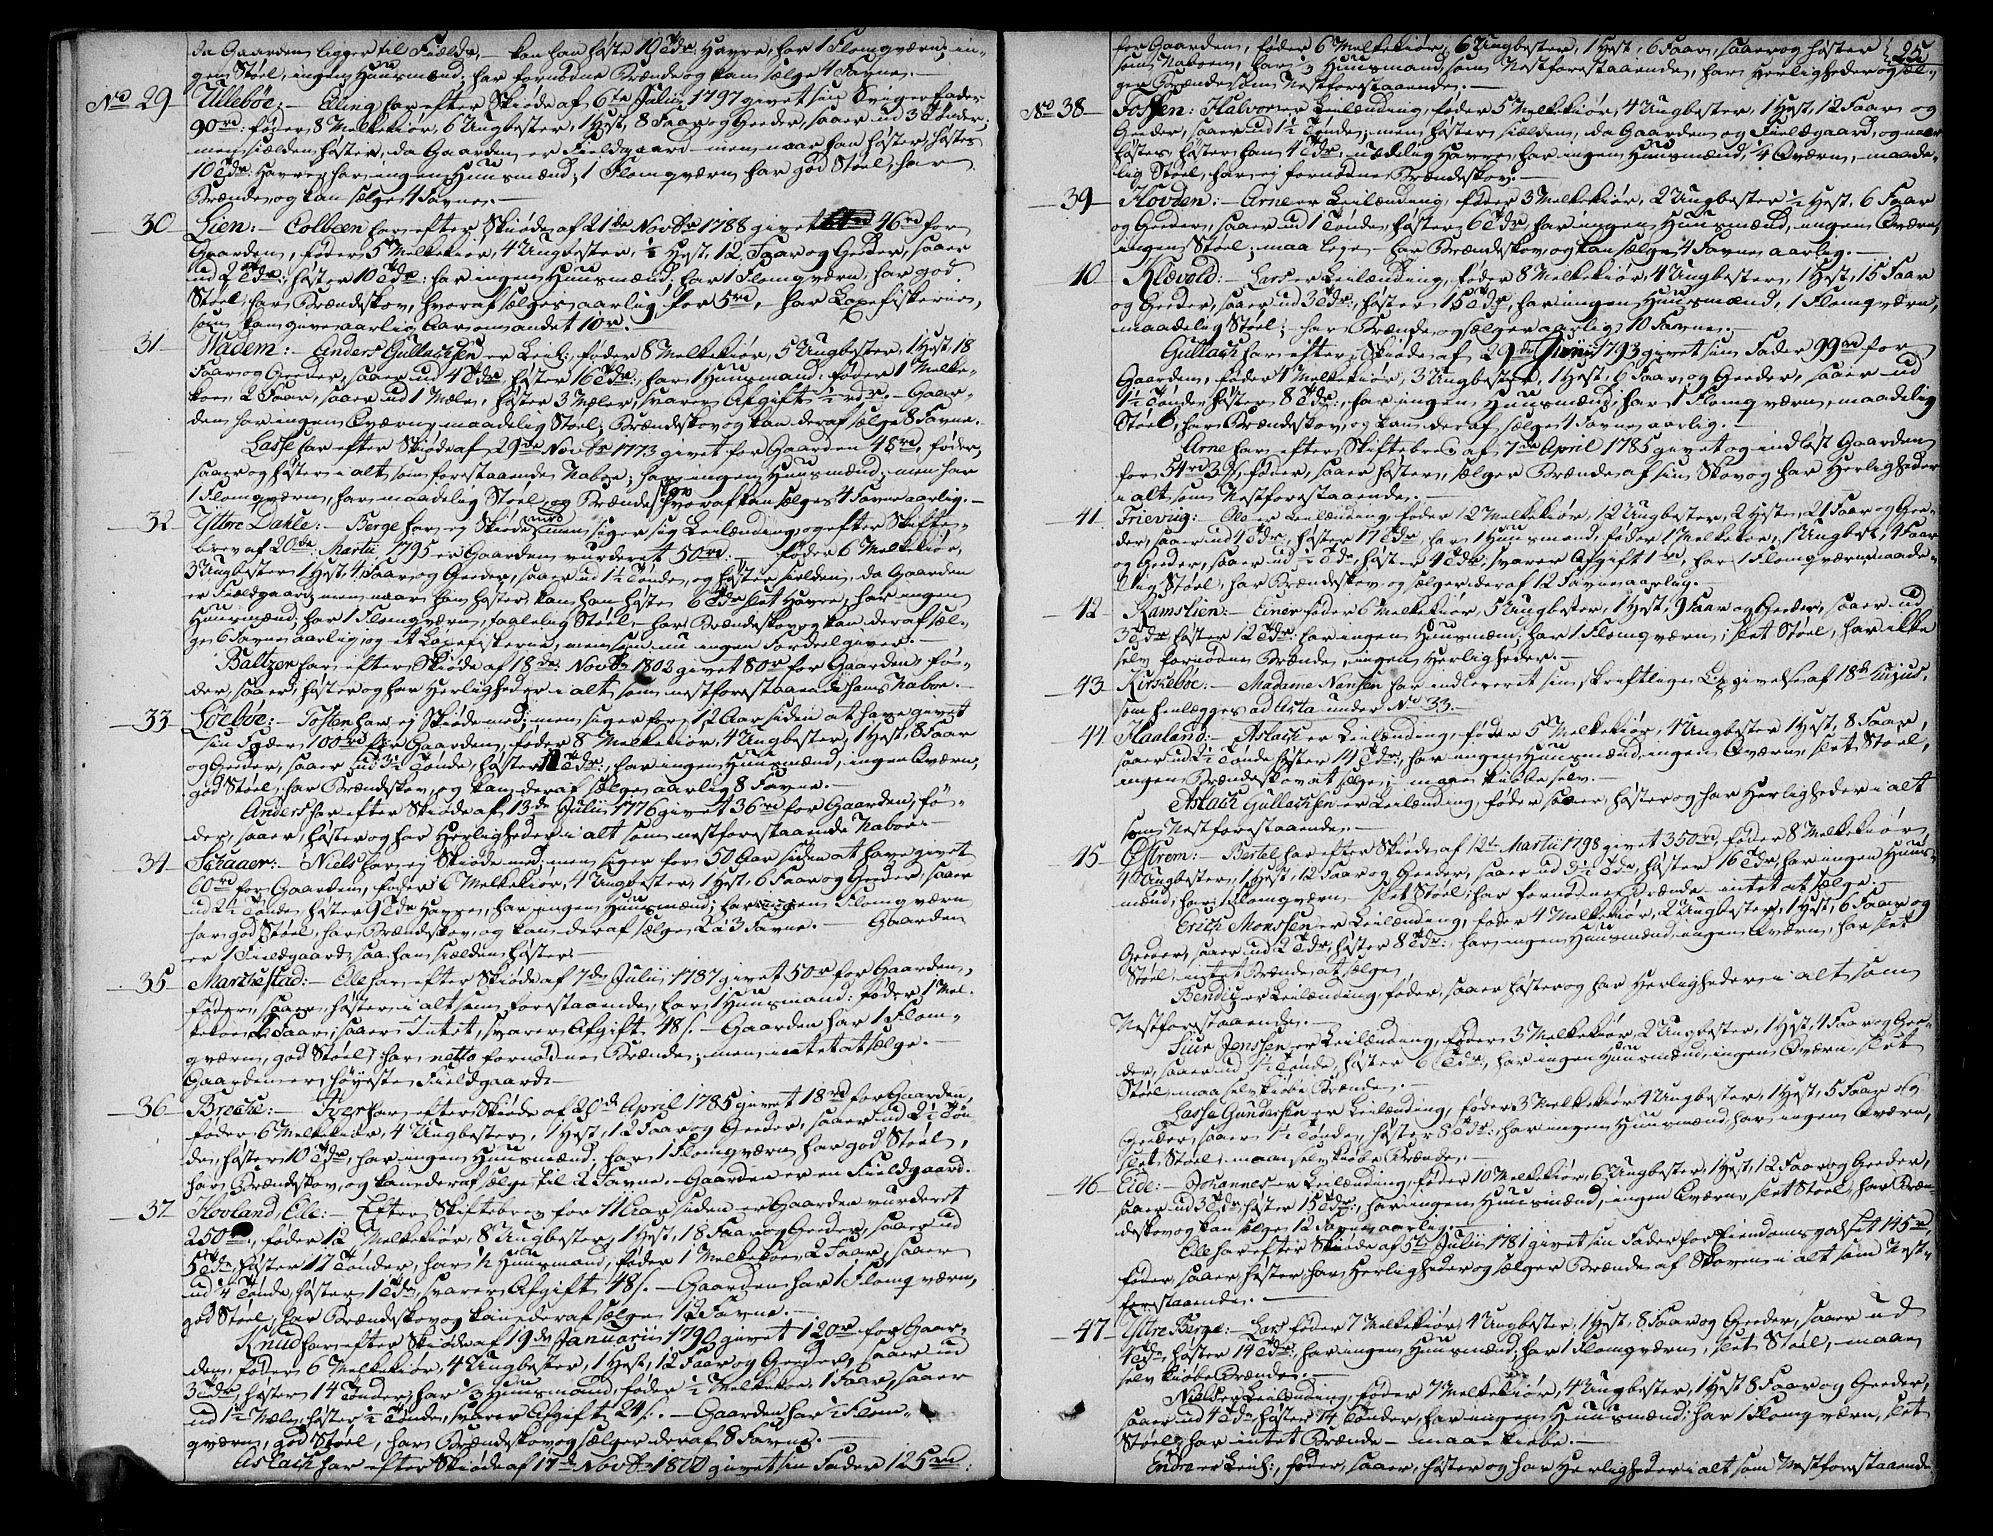 da Gaarden ligger til Fields, kan han høste 10 Tdr Havre, har 1 Flomqværn, in-
gen Støel, ingen Huusmænd, har fornødne Brænde og kan sælge 4 Favne. —
No 29 Ullebøe: — Elling har efter Skiøde af 6te Julii 1797 givet sin Svigerfader
90rd: føder 8 Melkekiør, 6 Ungbester, 1 Hest, 8 Faar og Geeder, saaer ud 3 Tønder,
men sielden høster, da Gaarden er Fieldgaard men naar han høster, høstes
10 Tdr Havre, har ingen Huusmænd, 1 Flomqværn, har god Støel, har
Brænde og kan sælge 4 Favne. —
30 Lien: — Colbeen har efter Skiøde af 21de Novbr 1788 givet 46rd for
Gaarden, føder 5 Melkekiør, 4 Ungbester, ½ Hest, 12 Faar og Geeder, saaer
ud 2 Tdr, høster 10 Tdr: har ingen Huusmænd, har 1 Flomqværn, har god
Støel, har Brændeskov, hvoraf sælges aarlig for 5rd, har Laxefiskerie,
som kan give aarlig Aar om andet 10r. —
31 Wadem: — Anders Gullachsen er Leil: føder 8 Melkekiør, 5 Ungbester, 1 Hest 18
Faar og Geeder, saaer ud 4 Tdr, høster 16 Tdr: har 1 Huusmand: føder 1 Melke-
koe, 2 Faar, saaer ud 1 Mæle, høster 3 Mæler, svarer Afgift ½ rdr. — Gaar-
den har ingen Qværn, maadelig Støel, Brændeskov og kan deraf sælge 8 Favne.
Lasse har efter Skiøde af 29de Novbr 1773 givet for Gaarden 48rd, føder,
saaer og høster i alt som forestaaende Naboe, har ingen Huusmænd; men har
1 Flomqværn, har maadelig Støel og Brændeskov hvoraf kan sælges 4 Favne aarlig. —
32 Yttre Dahle: — Berge har ej Skiøde med men siger sig Leilænding og efter Skifte-
brev af 20de Martii 1795 er Gaarden vurderet 50rd: — føder 6 Melkekiør,
3 Ungbester 1 Hest, 4 Faar og Geeder, saaer ud 1½ Tønde, og høster sielden, da Gaarden
er Fieldgaard, men naar han høster, kan han høste 6 Tdr slet Havre, har ingen
Huusmænd, har 1 Flomqværn, taalelig Støel, har Brændeskov og kan deraf sæl-
ge 6 Favne aarlig, og et Laxefiskerie, men som nu ingen Fordeel giver. —
Baltzer har efter Skiøde af 18de Novbr 1803 givet 80r for Gaarden, fø-
der, saaer, høster og har Herligheder i alt som nestforestaaende hans Naboe. —
33 Løebøe: — Tosten har ej Skiøde med; men siger for 12 Aar siden at have givet
sin Fader 100rd for Gaarden, føder 8 Melkekiør, 4 Ungbester, 1 Hest, 8 Faar
og Geeder, saaer ud 3½ Tønde, høster 11 Tdr:, har ingen Huusmænd, ingen Qværn,
god Støel, har Brændeskov og kan deraf sælge aarlig 8 Favne. —
Anders har efter Skiøde af 13de Julii 1776 givet 36rd for Gaarden, fø-
der, saaer, høster og har Herligheder i alt som nestforestaaende Naboe. —
34 Schaaer: — Niels har ej Skiøde med, men siger for 50 Aar siden at have givet
60rd for Gaarden, føder 6 Melkekiør, 4 Ungbester, 1 Hest, 6 Faar og Geeder, saaer
ud 2½ Tønde, høster 9 Tdr Havre, har ingen Huusmænd; har ingen Flomqværn
har god Støel, har Brændeskov, og kan deraf sælge 2 à 3 Favne. — Gaarden
er 1 Fieldgaard saa han sielden høster. —
35 Marchestad: — Ole har efter Skiøde af 7de Julii 1787 givet 50r for Gaarden,
føder, saaer, høster i alt som forestaaende, har 1 Huusmand: føder 1 Mel-
kekoe, 2 Faar, saaer Intet, svarer Afgift 48 s. — Gaarden har 1 Flom-
qværn, god Støel, har netto fornødne Brænde, men intet at sælge. —
Gaarden er høyeste Fieldgaard. —
36 Breche: — Iver har efter Skiøde af 20de April 1785 givet 18rd for Gaarden,
føder 6 Melkekiør, 4 Ungbester, 1 Hest, 12 Faar og Geeder, saaer ud 2½ Tøn-
de, høster 10 Tdr, har ingen Huusmænd, har 1 Flomqværn, har god Støel,
har Brændeskov, og kan deraf sælge til 2 Favne. — Gaarden er en Fieldgaard.
37 Hovland, Ole: — Efter Skiftebrev for 11 Aar siden er Gaarden vurderet
250rd:, føder 12 Melkekiør, 8 Ungbester, 1 Hest, 18 Faar og Geeder, saaer ud
5 Tdr, høster 17 Tønder, har ½ Huusmand, føder 1 Melkekoe, 2 Faar, saaer
ud ¼ Tønde, høster 1 Tdr, svarer Afgift 48 s. — Gaarden har 1 Flomqværn,
god Støel, har Brændeskov og kan deraf sælge 12 Favne. —
Knud har efter Skiøde af 19de Januarii 1790 givet 120r for Gaar-
den, føder 6 Melkekiør, 4 Ungbester, 1 Hest, 12 Faar og Geeder, saaer ud
3 Tdr, høster 14 Tønder, har ½ Huusmand, føder ½ Melkekoe, 1 Faar, saaer
ud 1½ Mæle, høster ½ Tønde, svarer Afgift 24 s. — Gaarden har ½ Flom-
qværn, god Støel, har Brændeskov og sælger deraf 8 Favne. —
Aslach har efter Skiøde af 17de Novbr 1800 givet sin Fader 125rd:
for Gaarden, føder 6 Melkekiør, 6 Ungbester, 1 Hest, 6 Faar, saaer og høster
som Naboen, har ½ Huusmand, som Nestforestaaende, har Herligheder og sæl-
ger Brænde som Nestforestaaende. —
25
No 38 Fossen: Halvor er Leilænding, føder 5 Melkekiør, 4 Ungbester, 1 Hest, 12 Faar og
Geeder, saaer ud 1½ Tønde, men høster sielden, da Gaarden er Fieldgaard, og naar
høstes, høster han 4 Tdr, uædelig Havre, har ingen Huusmænd, ¼ Qværn, maade-
lig Støel, har ej fornødne Brændeskov. —
39 Hovden: — Arne er Leilænding, føder 3 Melkekiør, 2 Ungbester ½ Hest, 6 Faar
og Geeder, saaer ud 1 Tønde, høster 6 Tdr har ingen Huusmænd, ingen Qværn,
ingen Støel; maa leye — har Brændeskov, og kan sælge 4 Favne aarlig. —
40 Klevold: — Lars er Leilænding, føder 8 Melkekiør, 4 Ungbester, 1 Hest, 15 Faar
og Geeder, saaer ud 3 Tdr:, høster 15 Tdr, har ingen Huusmænd, 1 Flomqværn,
maadelig Støel; har Brænde og sælger aarlig 10 Favne. —
Gullach har efter Skiøde af 29de Junii 1793 givet sin Fader 99rd for
Gaarden, føder 4 Melkekiør, 3 Ungbester, 1 Hest, 6 Faar og Geeder, saaer ud
1½ Tønde, høster 8 Tdr:, har ingen Huusmænd; har 1 Flomqværn, maadelig
Støel, har Brændeskov, og kan deraf sælge 4 Favne aarlig. —
Arne har efter Skiftebrev af 7de April 1785 givet og indløst Gaarden
for 54rd 3 s, føder, saaer, høster, sælger Brænde af sin Skov og har Herligheder
i alt som Nestforestaaende. —
41 Frievig: — Ole er Leilænding, føder 12 Melkekiør, 12 Ungbester, 2 Heste, 21 Faar og Gee-
der, saaer ud 4 Tdr, høster 17 Tdr, har 1 Huusmand, føder 1 Melkekoe, 1 Ungbest, 4 Faar
og Geeder, saaer ud ½ Tdr, høster 4 Tdr, svarer Afgift 1 rd, har 1 Flomqværn, maade-
lig Støel, har Brændeskov, og sælger deraf 12 Favne aarlig. —
42 Ramslien: — Einer føder 6 Melkekiør, 5 Ungbester, 1 Hest, 9 Faar og Geeder, saaer ud
3 Tdr, høster 12 Tdr: har ingen Huusmænd, har 1 Flomqværn, slet Støel, har ikke
selv fornødne Brænde, ingen Herligheder. —
43 Kirkebøe: — Madame Nansen har indleveret sin skriftlige Opgivelse af 18de hujus,
som henlægges ad Acta under No 33. —
44 Haaland: — Aslach er Leilænding, føder 5 Melkekiør, 4 Ungbester 1 Hest, 8 Faar,
saaer ud 2½ Tønde, høster 14 Tdr:, har ingen Huusmænd, ingen Qværn, slet Støel,
ingen Brændeskov at sælge, maae kiøbe selv. —
Aslach Gullachsen er Leilænding, føder saaer, høster og har Herligheder i alt
som Nestforestaaende. —
45 Østrem: — Bertel har efter Skiøde af 12te Martii 1798 givet 350rd, føder 8 Melkekiør,
4 Ungbester, 1 Hest, 12 Faar og Geeder, saaer ud 3½ Tdr, høster 16 Tdr, har ingen Huus-
mænd, har 1 Flomqværn, slet Støel, har fornødne Brænde intet at sælge. —
Erich Monssen er Leilænding, føder 4 Melkekiør, 2 Ungbester, 1 Hest, 6 Faar og
Geeder, saaer ud 2 Tdr, høster 8 Tdr:, har ingen Huusmænd, ingen Qværn, har slet
Støel, intet Brænde at sælge.
Bendix er Leilænding, føder, saaer, høster og har Herligheder i alt som
Nestforestaaende. —
Siur Jenssen er Leilænding, føder 3 Melkekiør, 2 Ungbester, 1 Hest, 4 Faar og Gee-
der, saaer ud 1½ Tønde, høster 6 Tdr:, har ingen Huusmænd, ingen Qværn, slet
Støel, maa selv kiøbe Brænde. —
Lasse Gundersen er Leilænding, føder 3 Melkekiør 4 Ungbester, 1 Hest, 5 Faar og
Geeder, saaer 1½ Tønde, høster 8 Tdr:, har ingen Huusmænd, har ingen Qværn,
slet Støel, maae selv kiøbe Brænde. —
46 Eide: — Johannes er Leilænding, føder 10 Melkekiør, 6 Ungbester, 1 Hest, 12 Faar og Geeder,
saaer ud 3 Tdr, høster 15 Tdr:, har ingen Huusmænd, ingen Qværn, slet Støel, har Bræn-
deskov og kan sælge 12 Favne aarlig. —
Ole har efter Skiøde af 5te Julii 1781 givet sin Fader for Eiendomsgodset 145rd,
føder, saaer, høster, har Herligheder og sælger Brænde af Skoven i alt som Nest-
forestaaende. —
47 Yttre Berge: — Lars føder 7 Melkekiør, 4 Ungbester, 1 Hest, 8 Faar og Geeder, saaer ud
4 Tdr, høster 14 Tdr:, har ingen Huusmænd, har 1 Flomqværn, slet Støel, maae
selv kiøbe Brænde. —
Niels er Leilænding, føder 7 Melkekiør, 4 Ungbester, 1 Hest 8 Faar og Geeder,
saaer ud 4 Tdr, høster 14 Tønder, har ingen Huusmænd, har 1 Flomqværn, slet
Støel, har intet Brænde — maae kiøbe. —
Endre er Leil:, føder, saaer, høster og har Herligheder i alt som Nestforestaaende